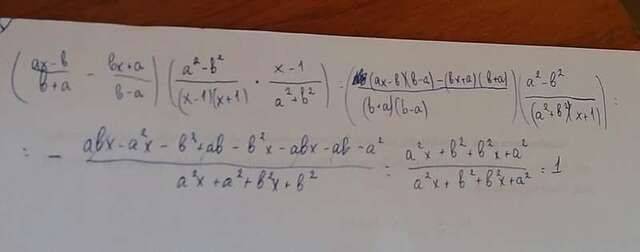 (ax-b/b+a - bx+a/b-a)(a²-b²/(x-1)(x+1) · x-1/a²+b²) = ((ax-b)(b-a)-(bx+a)(b+a)/(b+a)(b-a))(a²-b²/(a²+b²)(x+1)) =
= - abx-a²x-b²+ab-b²x-abx-ab-a²/a²x+a²+b²x+b² = a²x+b²+b²x+a²/a²x+b²+b²x+a² = 1